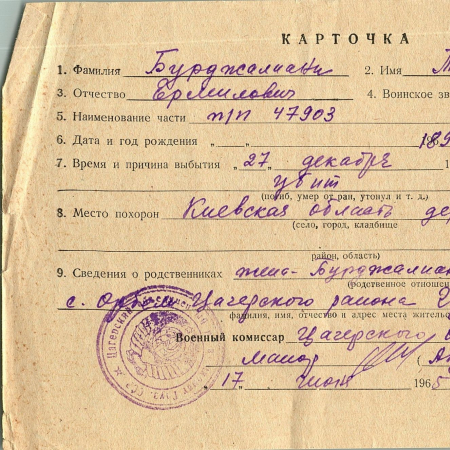 КАРТОЧКА
1. Фамилия Бурджалиани 2. Имя
3. Отчество Ермилович 4. Воинское зв
5. Наименование части п/п 47903
6. Дата и год рождения „ “ 189
7. Время и причина выбытия „27 декабрь 1
убит
(погиб, умер от ран, утонул и т. д.)
8. Место похорон Киевская область дер
(село, город, кладбище
район, область)
9. Сведения о родственниках жена - Бурджалиан
(родственное отношен
с. Цагерского района
фамилия, имя, отчество и адрес места жительс
Военный комиссар Цагерского
майор (
„17 июн 1965